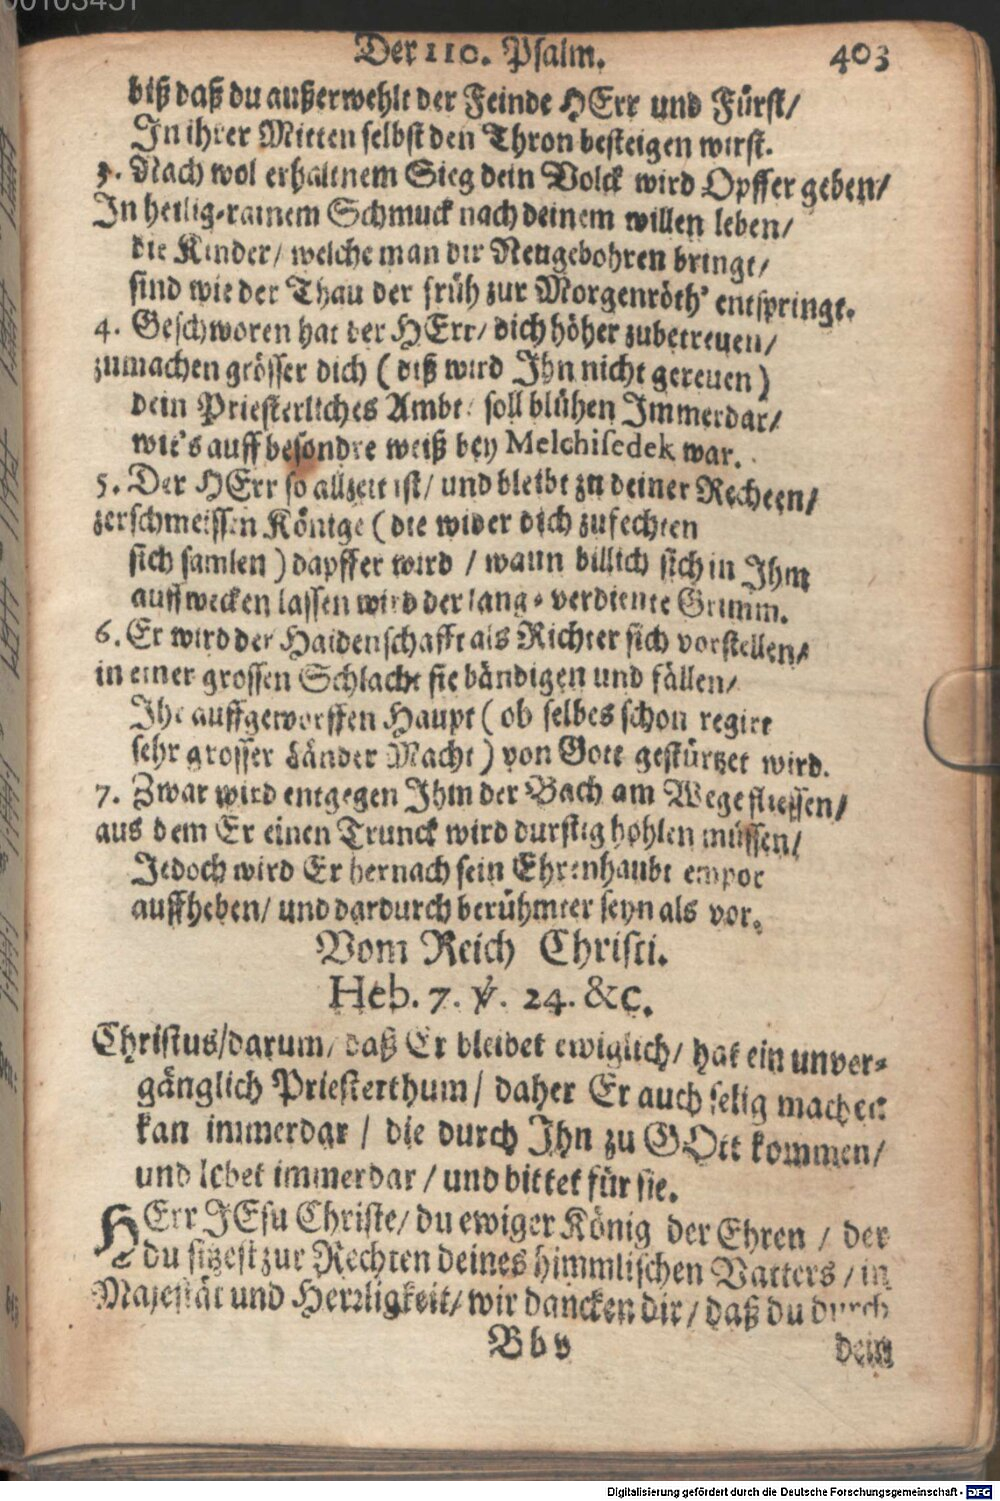 00103451
Der 110. Psalm. 403
biß daß du außerwehlt der Feinde HErr und Fürst/
In ihrer Mitten selbst den Thron besteigen wirst.
3. Nach wol erhaltnem Sieg dein Volck wird Opffer geben/
In heilig-rainem Schmuck nach deinem willen leben/
die Kinder/ welche man dir Neugebohren bringt/
sind wie der Thau der früh zur Morgenröth' entspringt.
4. Geschworen hat der HErr/ dich höher zubetreuen/
zumachen grösser dich (diß wird Ihn nicht gereuen)
dein Priesterliches Ambt/ soll blühen Immerdar/
wie's auff besondre weiß bey Melchisedek war.
5. Der HErr so allzeit ist/ und bleibt zu deiner Rechten/
zerschmeissen Könige (die wider dich zufechten
sich samlen) dapffer wird / wann billich sich in Ihm
auffwecken lassen wird der lang-verdiente Grimm.
6. Er wird der Haidenschafft als Richter sich vorstellen/
in einer grossen Schlacht sie bändigen und fällen/
Ihr auffgeworffen Haupt (ob selbes schon regirt
sehr grosser Länder Macht) von Gott gestürtzet wird.
7. Zwar wird entgegen Ihm der Bach am Wege fliessen/
aus dem Er einen Trunck wird durstig hohlen müssen/
Jedoch wird Er hernach sein Ehrenhaubt empor
auffheben/ und dardurch berühmter seyn als vor.
Vom Reich Christi.
Heb. 7. ℣. 24. &c.
Christus/darum/ daß Er bleibet ewiglich/ hat ein unver-
gänglich Priesterthum/ daher Er auch selig machen
kan immerdar / die durch Ihn zu GOtt kommen/
und lebet immerdar / und bittet für sie.
HErr JEsu Christe/ du ewiger König der Ehren / der
du sitzest zur Rechten deines himmlischen Vatters / in
Majestät und Herrligkeit/ wir dancken dir/ daß du durch
Bb v dein
Digitalisierung gefördert durch die Deutsche Forschungsgemeinschaft - DFG